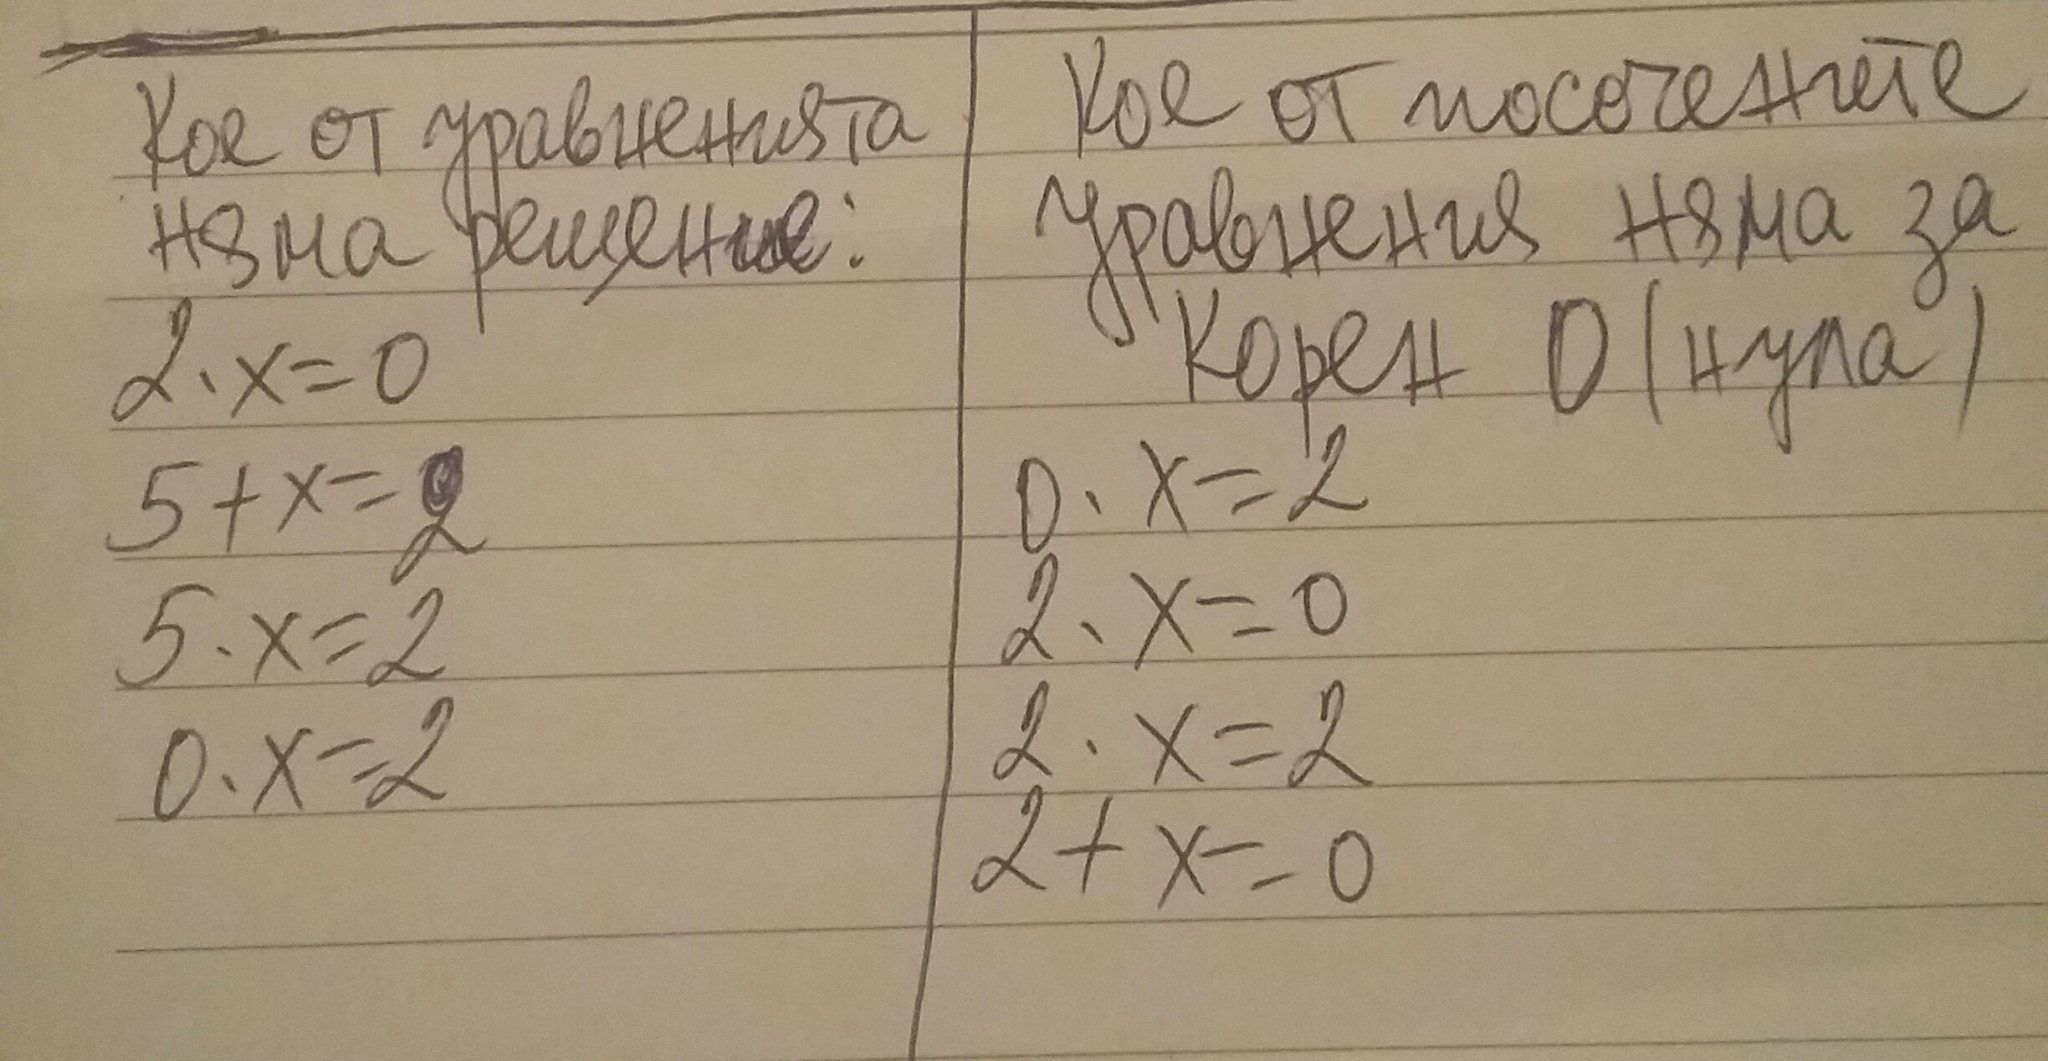 Кое от уравненията
няма решение:
2.x=0
5+x=2
5.x=2
0.x=2
Кое от посочените
уравнения няма за
корен 0 (нула)
0.x=2
2.x=0
2.x=2
2+x=0